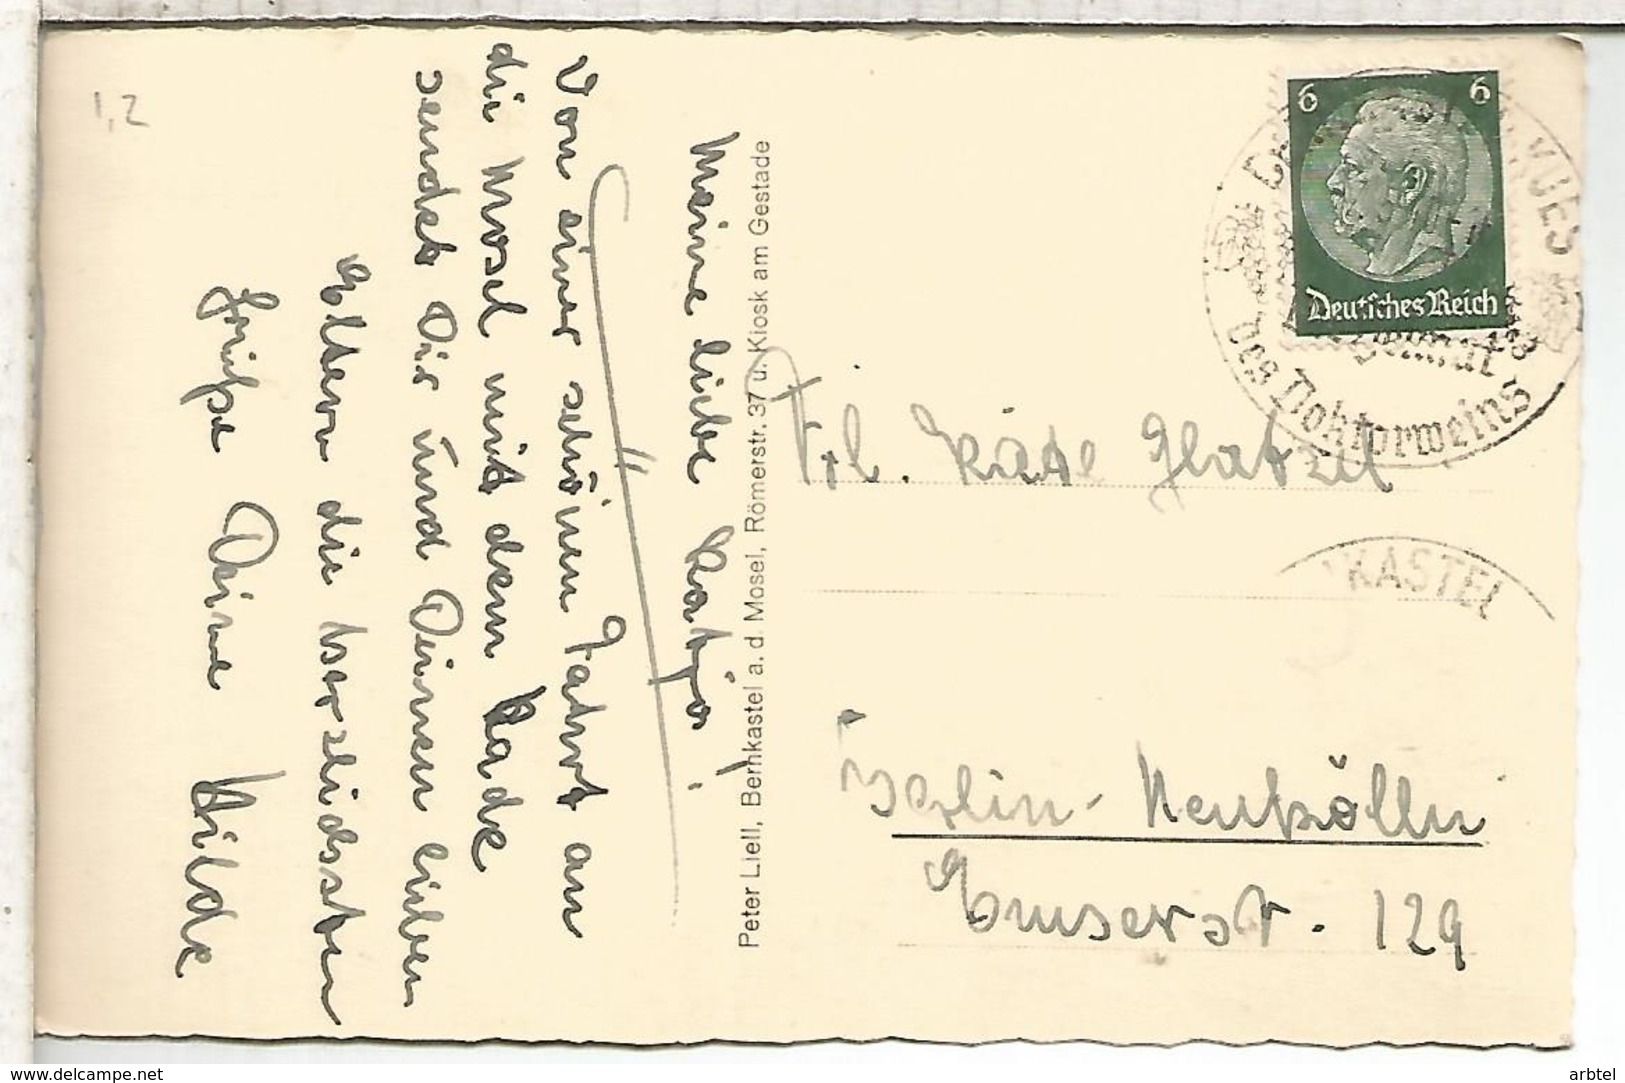 1,2
Meine liebe Katja!
Von einer schönen Fahrt an
die Mosel mit dem Rade
sendet Dir und Deinen lieben
Eltern die herzlichsten
Grüße Deine Hilde
Peter Liell, Bernkastel a. d. Mosel, Römerstr. 37 u. Kiosk am Gestade
6 6
Deutsches Reich
KUES
des Doktorweins
Frl. Käte Glatzel
KASTEL
Berlin-Neukölln
Emserstr. 129
www.delcampe.net
arbtel